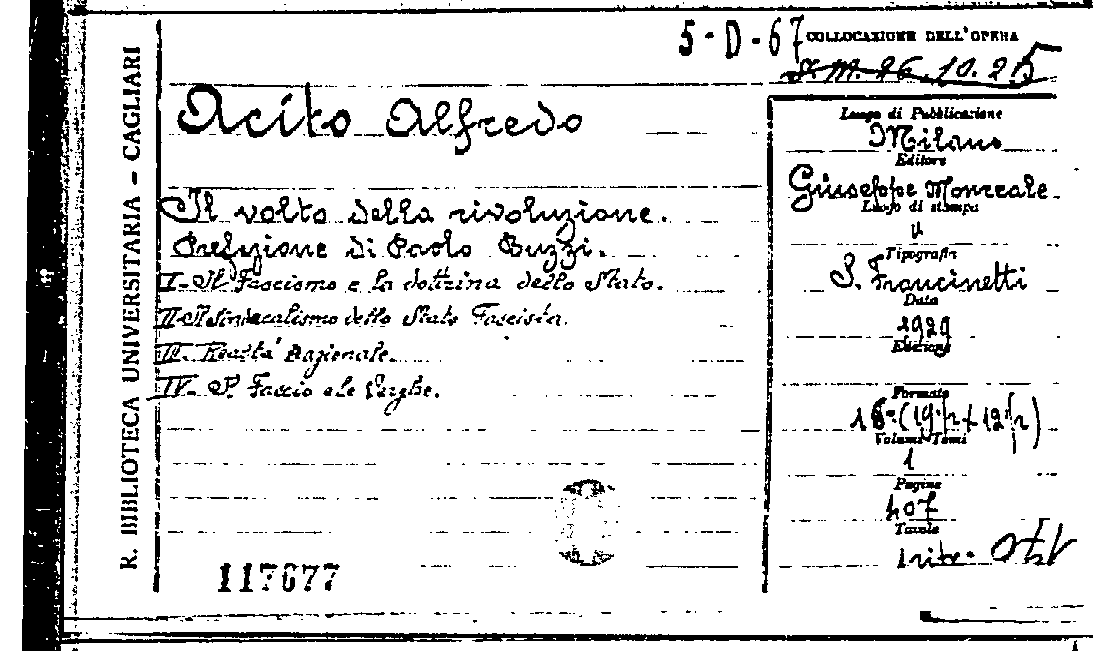 R. BIBLIOTECA UNIVERSITARIA - CAGLIARI
5-D-67
COLLOCAZIONE DELL'OPERA
S.M. 26.10.25
Acito Alfredo
Il volto della rivoluzione.
Prefazione di Paolo Buzzi.
I- Il Fascismo e la dottrina dello Stato.
II- Il sindacalismo dello Stato Fascista.
III- Realtà Nazionale.
IV- Il Fascio e le Verghe.
117677
Luogo di Pubblicazione
Milano
Editore
Giuseppe Monreale
Luogo di stampa
"
Tipografia
S. Francinetti
Data
1929
Edizione
Formato
16º (19
Volumi-Tomi
1
Pagine
407
Tavole